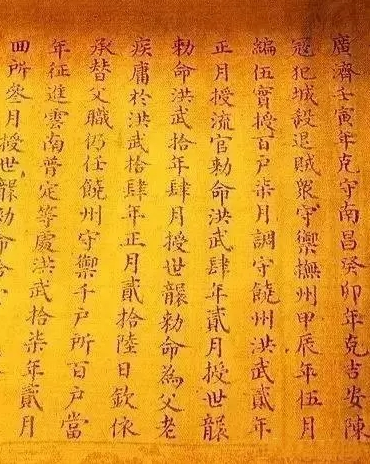 廣濟壬寅年克守南昌癸卯年克吉安陳
寇犯城殺退賊衆守禦撫州甲辰年伍月
編伍實授百戶柒月調守饒州洪武貳年
正月授流官勅命洪武肆年貳月授世襲
勅命洪武拾年肆月授世襲勅命為父老
疾庸於洪武拾肆年正月貳拾陸日欽依
承替父職仍任饒州守禦千戶所百戶當
年征進雲南普定等處洪武拾柒年貳月
四所叄月授世襲勅命